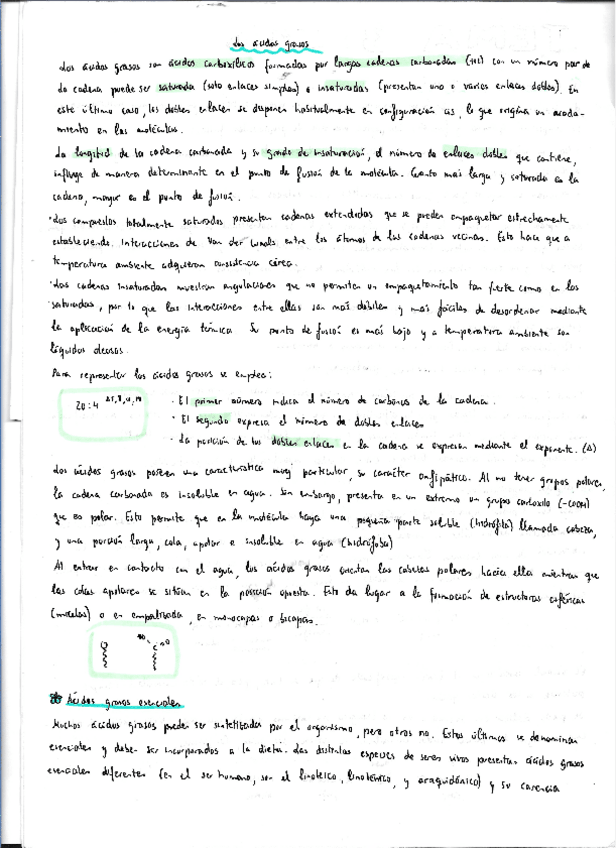 Los ácidos grasos
Los ácidos grasos son ácidos carboxílicos formados por largas cadenas carbonadas con un número par de
La cadena puede ser saturada (solo enlaces simples) o insaturadas (presentan uno o varios enlaces dobles). En
este último caso, los dobles enlaces se disponen habitualmente en configuración cis, lo que origina un acoda-
miento en las moléculas.
La longitud de la cadena carbonada y su grado de insaturación, el número de enlaces dobles que contiene,
influye de manera determinante en el punto de fusión de la molécula. Cuanto más larga y saturada es la
cadena, mayor es el punto de fusión.
·Los compuestos totalmente saturados presentan cadenas extendidas que se pueden empaquetar estrechamente
estableciendo interacciones de Van der Waals entre los átomos de las cadenas vecinas. Esto hace que a
temperatura ambiente adquieran consistencia cérea.
·Las cadenas insaturadas muestran angulaciones que no permiten un empaquetamiento tan fuerte como en las
saturadas, por lo que las interacciones entre ellas son más débiles y más fáciles de desordenar mediante
la aplicación de la energía térmica. Su punto de fusión es más bajo y a temperatura ambiente son
líquidos
Para representar los ácidos grasos se emplea:
20:4
· El primer número indica el número de carbonos de la cadena.
· El segundo expresa el número de dobles enlaces
· La posición de los dobles enlaces en la cadena se expresan mediante el exponente. (Δ)
Los ácidos grasos poseen una característica muy particular, su carácter anfipático. Al no tener grupos polares,
la cadena carbonada es insoluble en agua. Sin embargo, presenta en un extremo un grupo carboxilo (-COOH)
que es polar. Esto permite que en la molécula haya una pequeña parte soluble (hidrófila) llamada cabeza,
y una porción larga, cola, apolar e insoluble en agua (hidrófoba)
Al entrar en contacto con el agua, los ácidos grasos orientan las cabezas polares hacia ella mientras que
las colas apolares se sitúan en la posición opuesta. Esto da lugar a la formación de estructuras esféricas
(micelas) o en empalizada, en monocapas o bicapas.
HO C O
Ácidos grasos esenciales
Muchos ácidos grasos pueden ser sintetizados por el organismo, pero otros no. Estos últimos se denominan
esenciales y deben ser incorporados a la dieta. Las distintas especies de seres vivos presentan ácidos grasos
esenciales diferentes (en el ser humano, son el linoleico, linolénico, y araquidónico) y su carencia